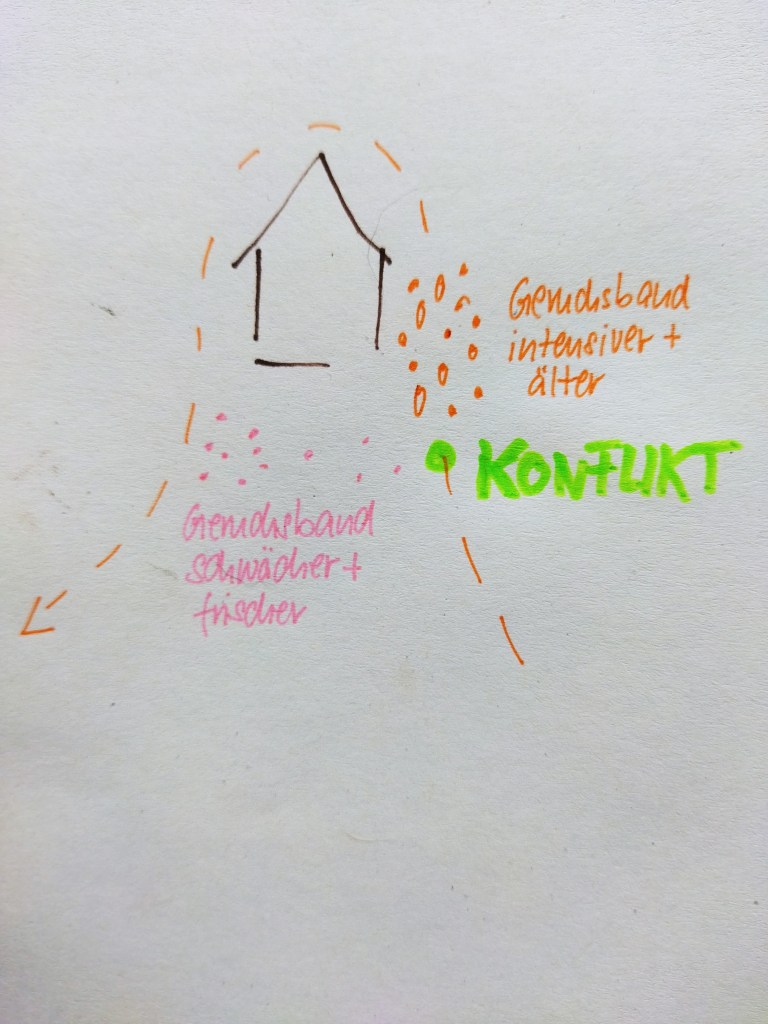 Geruchsband
intensiver +
älter
KONFLIKT
Geruchsband
schwächer +
frischer